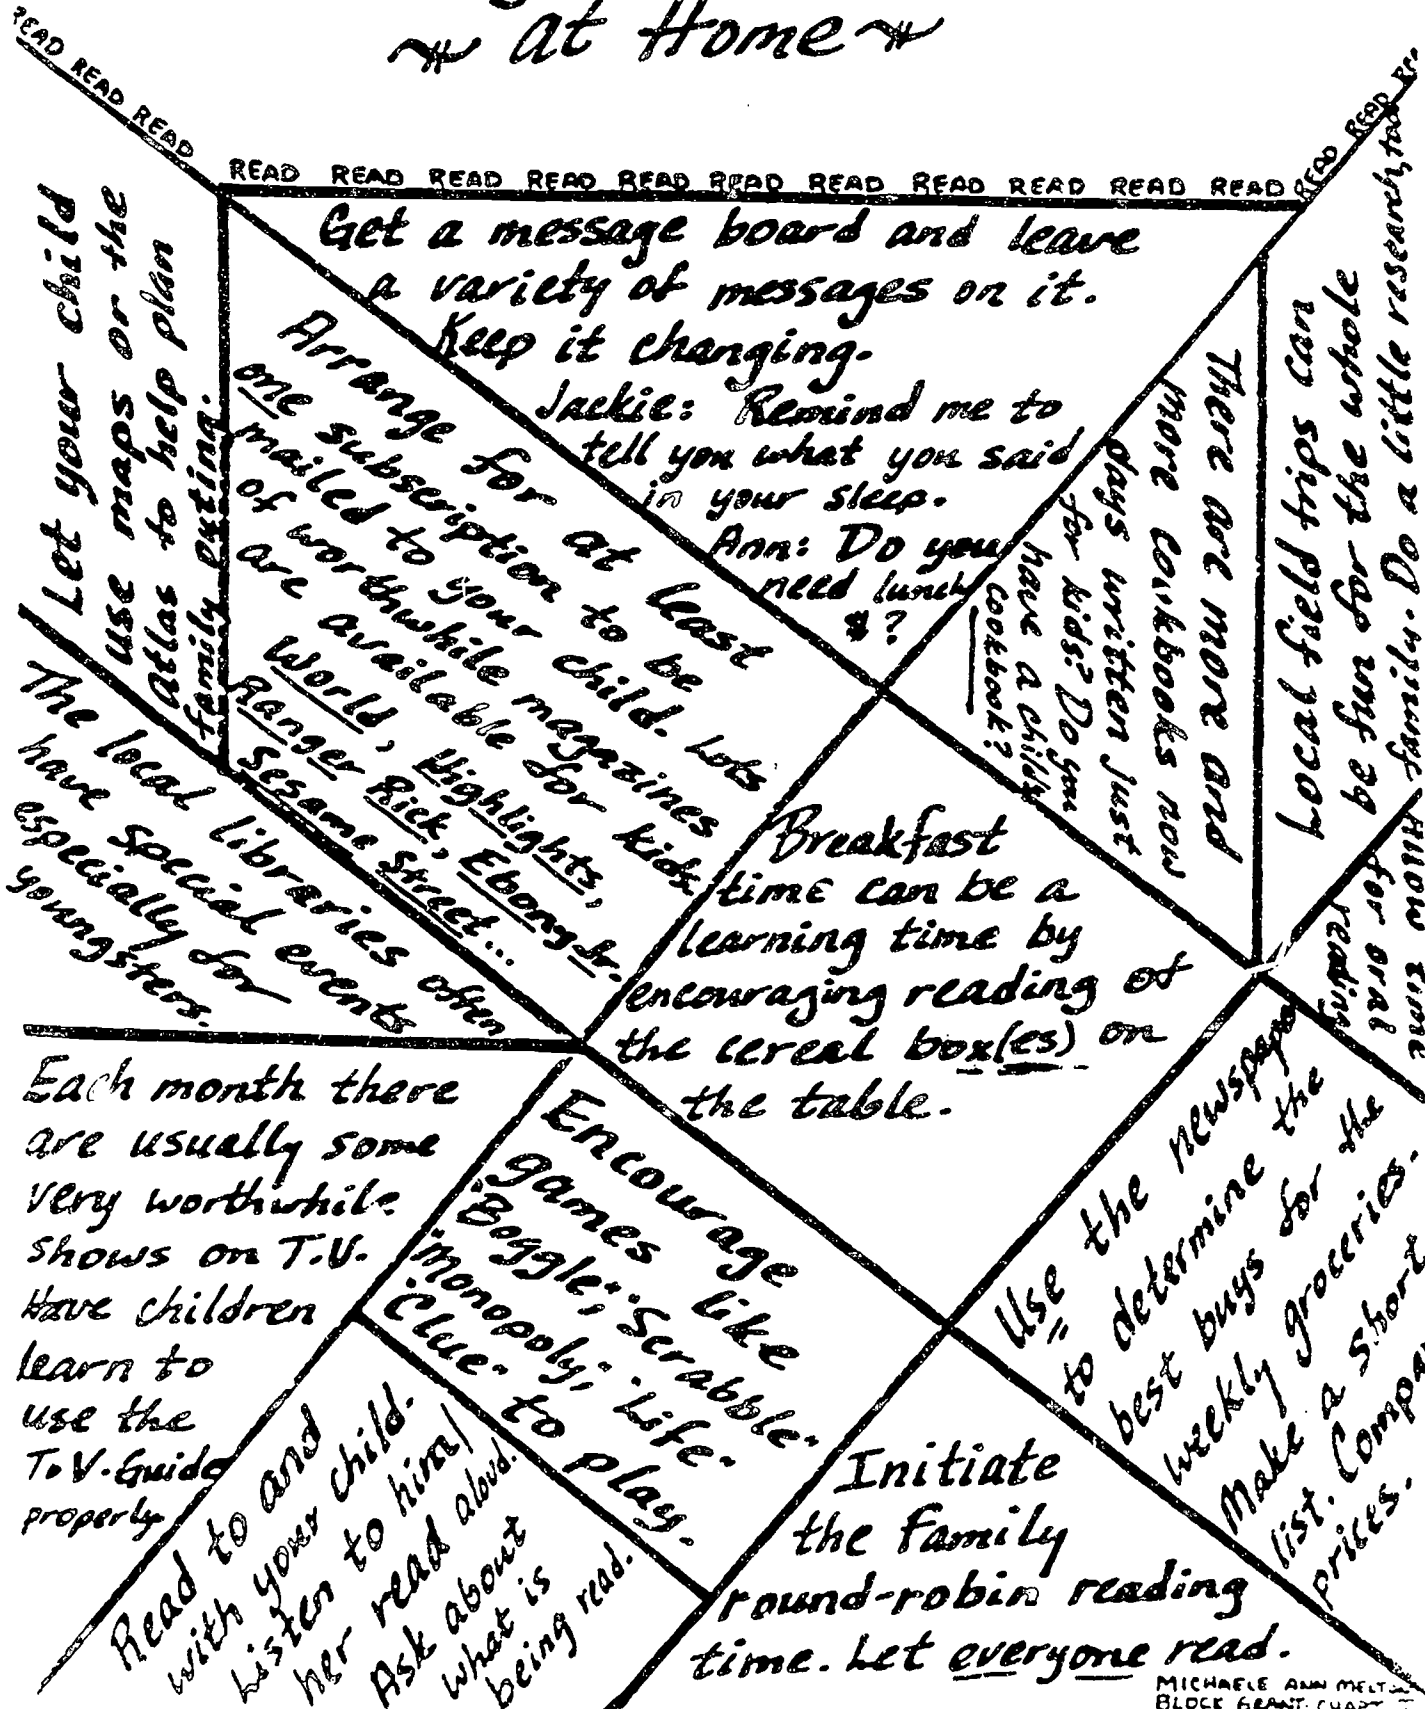 at Home
READ READ READ
READ READ READ READ READ READ READ READ READ READ READ
READ READ
Get a message board and leave
a variety of messages on it.
Keep it changing.
Jackie: Remind me to
tell you what you said
in your sleep.
Ann: Do you
need lunch
$?
Let your child
use maps or the
atlas to help plan
family outing.
Arrange for at least
one subscription to be
mailed to your child. Lots
of worthwhile magazines
are available for kids.
World, Highlights,
Ranger Rick, Ebony Jr.
Sesame Street...
There are more and
more cookbooks now
days written just
for kids? Do you
have a child's
cookbook?
Local field trips can
be fun for the whole
family. Do a little research, too
Allow time
for oral
reading
The local libraries often
have special events
especially for
youngsters.
Breakfast
time can be a
learning time by
encouraging reading of
the cereal box(es) on
the table.
Each month there
are usually some
very worthwhile
shows on T.V.
Have children
learn to
use the
T.V. Guide
properly.
Encourage
games like
"Boggle," "Scrabble"
"Monopoly," "Life"
"Clue" to play.
Use the newspaper
to determine the
best buys for the
weekly groceries.
Make a short
list. Compare
prices.
Read to and
with your child.
Listen to him/
her read aloud.
Ask about
what is
being read.
Initiate
the family
round-robin reading
time. Let everyone read.
MICHAELE ANN
BLOCK GRANT